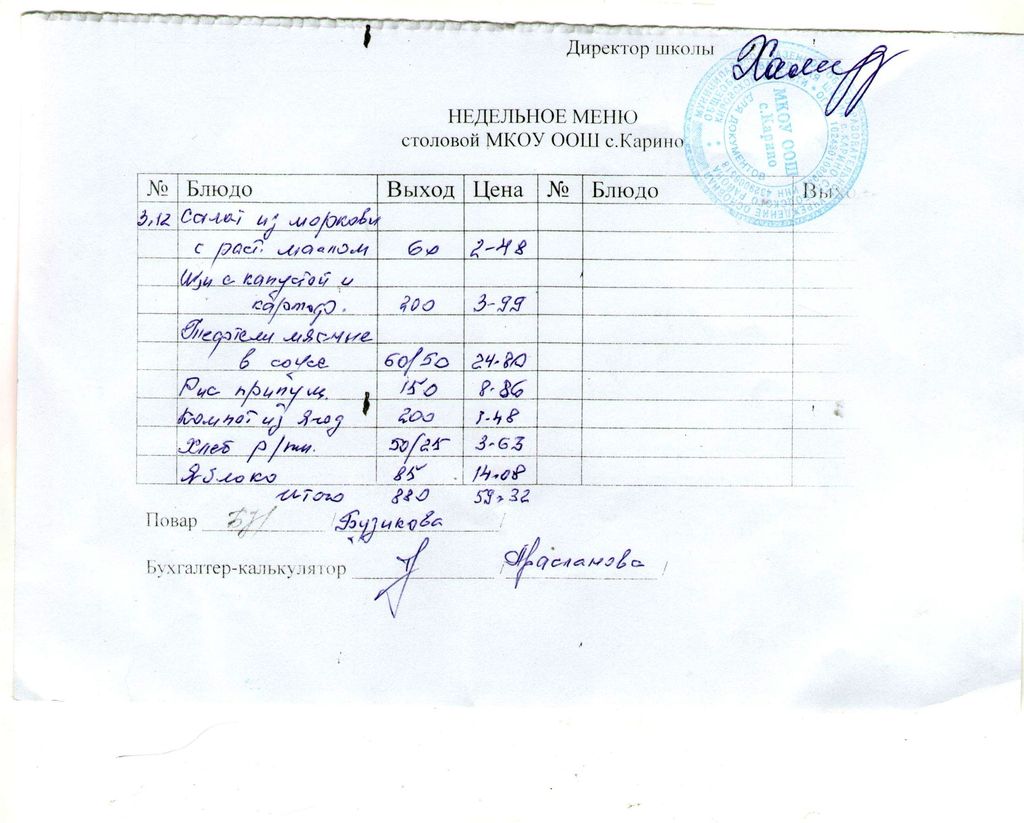 Директор школы
НЕДЕЛЬНОЕ МЕНЮ
столовой МКОУ ООШ с.Карино
№ Блюдо Выход Цена № Блюдо Вых
3,12 Салат из моркови
с раст. маслом 60 2-48
Щи с капустой и
картоф. 200 3-99
Тефтели мясные
в соусе 60/50 24-80
Рис припущ. 150 8-86
Компот из ягод 200 1-48
Хлеб р/пш. 50/25 3-63
Яблоко 85 14-08
Итого 880 59-32
Повар / Бузикова /
Бухгалтер-калькулятор / Арасланова /
МКОУ ООШ
с.Карино
ДЛЯ ДОКУМЕНТОВ